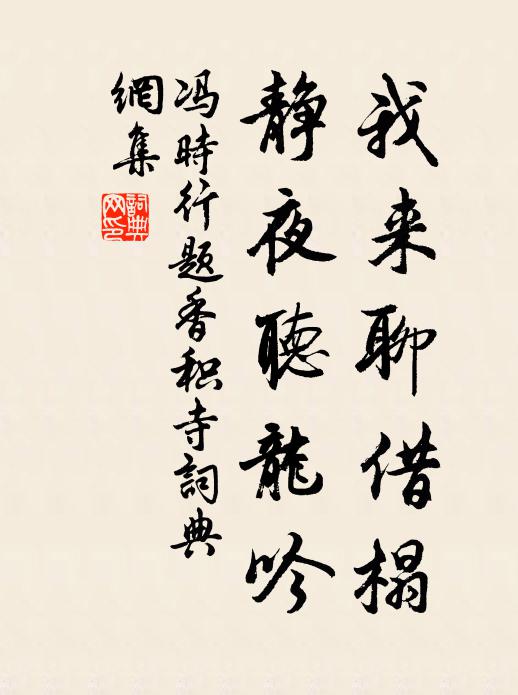 我来聊借榻
静夜聽龍吟
冯時行题香积寺詞典
網集
詞典
网印